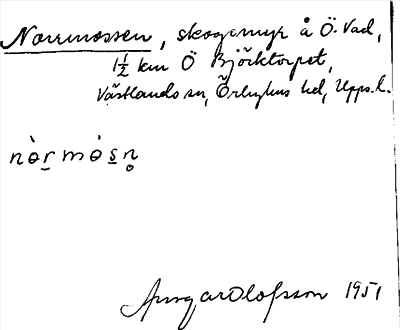 Norrmossen, skogsmyr å Ö. Vad,
1½ km Ö Björktorpet,
Västlands sn, Örbyhus hd, Upps. l.
nòr̲mòs̲n̥
Ingvar Olofsson 1951